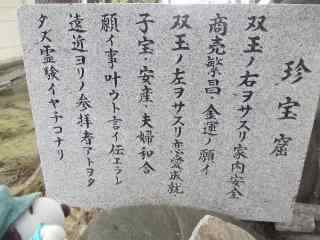 珍宝窟
双玉ノ右ヲサスリ家内安全
商売繁昌金運ノ願イ
双玉ノ左ヲサスリ恋愛成就
子宝・安産・夫婦和合
願イ事叶ウト言イ伝エラレ
遠近ヨリノ参拝者アトヲタ
タズ霊験イヤチコナリ